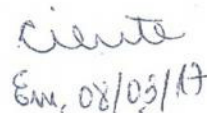 Ciente
Em, 08/03/17